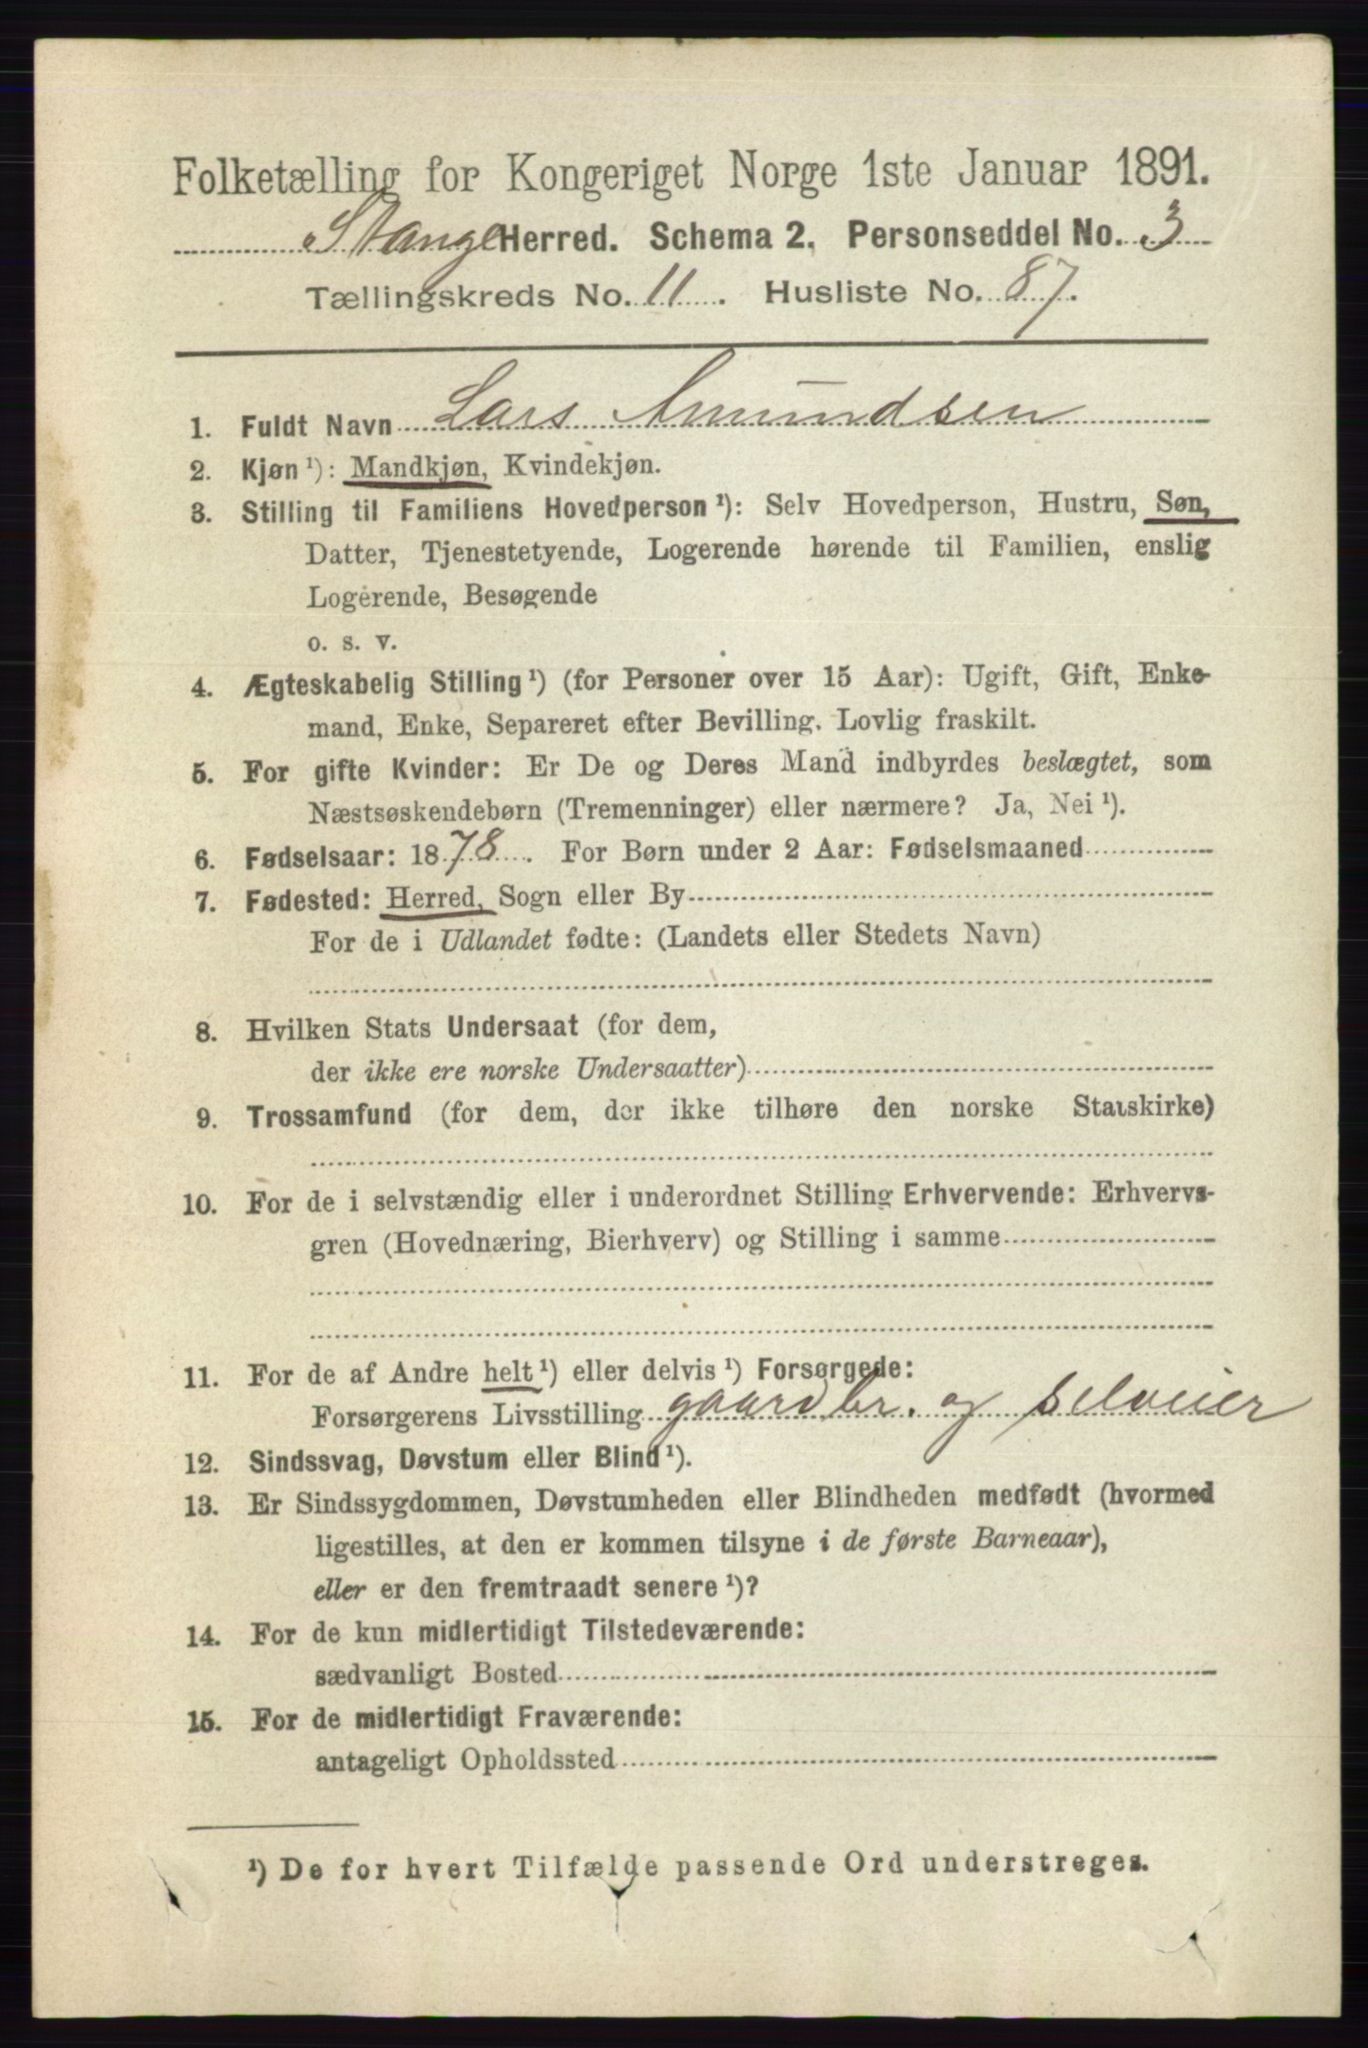 Folketælling for Kongeriget Norge 1ste Januar 1891.
Stange Herred. Schema 2. Personseddel No. 3
Tællingskreds No. 11. Husliste No. 87.
1. Fuldt Navn Lars Amundsen
2. Kjøn ¹): Mandkjøn, Kvindekjøn.
3. Stilling til Familiens Hovedperson ¹): Selv Hovedperson, Hustru, Søn,
Datter, Tjenestetyende, Logerende hørende til Familien, enslig
Logerende, Besøgende
o. s. v.
4. Ægteskabelig Stilling ¹) (for Personer over 15 Aar): Ugift, Gift, Enke-
mand, Enke, Separeret efter Bevilling. Lovlig fraskilt.
5. For gifte Kvinder: Er De og Deres Mand indbyrdes beslægtet, som
Næstsøskendebørn (Tremenninger) eller nærmere? Ja, Nei ¹).
6. Fødselsaar: 1878. For Børn under 2 Aar: Fødselsmaaned
7. Fødested: Herred, Sogn eller By
For de i Udlandet fødte: (Landets eller Stedets Navn)
8. Hvilken Stats Undersaat (for dem,
der ikke ere norske Undersaatter)
9. Trossamfund (for dem, der ikke tilhøre den norske Statskirke)
10. For de i selvstændig eller i underordnet Stilling Erhvervende: Erhvervs-
gren (Hovednæring, Bierhverv) og Stilling i samme
11. For de af Andre helt ¹) eller delvis ¹) Forsørgede:
Forsørgerens Livsstilling gaardbr. og selveier
12. Sindssvag, Døvstum eller Blind ¹).
13. Er Sindssygdommen, Døvstumheden eller Blindheden medfødt (hvormed
ligestilles, at den er kommen tilsyne i de første Barneaar),
eller er den fremtraadt senere ¹)?
14. For de kun midlertidigt Tilstedeværende:
sædvanligt Bosted
15. For de midlertidigt Fraværende:
antageligt Opholdssted
¹) De for hvert Tilfælde passende Ord understreges.